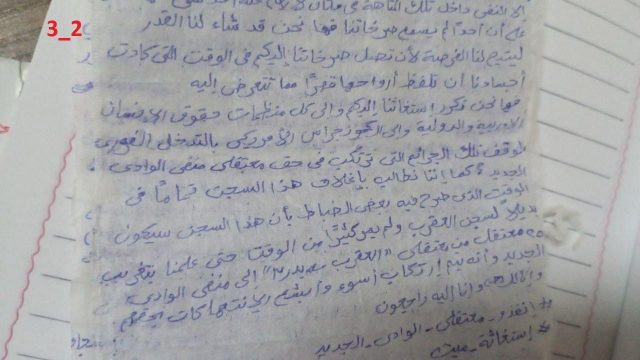 3_2
على أن أحدًا لم يسمع صرخاتنا فها نحن قد شاء لنا القدر
ليتيح لنا الفرصة لأن تصل صرخاتنا إليكم في الوقت التي كادت
أجسادنا أن تلفظ أرواحها قهرًا مما نتعرض إليه
فها نحن نكرر استغاثتنا إليكم وإلى كل منظمات حقوق الإنسان
الأوربية والدولية وإلى الكونجرس الأمريكي بالتدخل الفوري
لوقف تلك الجرائم التي ترتكب في حق معتقلي منفى الوادي
الجديد، كما إننا نطالب بإغلاق هذا السجن تمامًا في
الوقت الذي صرح فيه بعض الضباط بأن هذا السجن سيكون
بديلاً لسجن العقرب ولم يمر كثيرًا من الوقت حتى علمنا بتغريب
معتقل من معتقلي "العقرب شديد ٢" إلى منفى الوادي
الجديد وأنه يتم ارتكاب أسوء وأبشع الانتهاكات بحقهم
وإنا لله وإنا إليه راجعون
# انقذو_معتقلي_الوادي_الجديد
# استغاثة_ميت